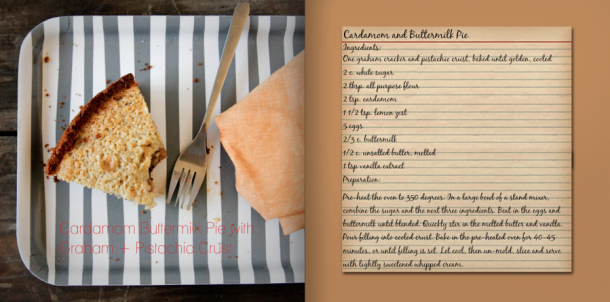 Cardamom Buttermilk Pie with
Graham + Pistachio Crust
Cardamom and Buttermilk Pie
Ingredients:
One graham cracker and pistachio crust, baked until golden, cooled
2 c. white sugar
2 tbsp. all purpose flour
2 tsp. cardamom
1 1/2 tsp. lemon zest
5 eggs
2/3 c. buttermilk
1/2 c. unsalted butter, melted
1 tsp vanilla extract
Preparation:
Pre-heat the oven to 350 degrees. In a large bowl of a stand mixer,
combine the sugar and the next three ingredients. Beat in the eggs and
buttermilk until blended. Quickly stir in the melted butter and vanilla.
Pour filling into cooled crust. Bake in the pre-heated oven for 40-45
minutes, or until filling is set. Let cool, then un-mold, slice and serve
with lightly sweetened whipped cream.